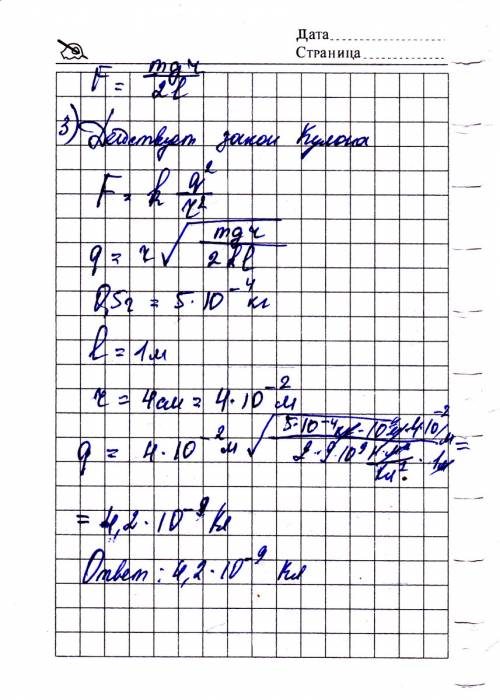 Дата
Страница
F = mgr/2l
3) Действует закон Кулона
F = k q²/r²
q = r√(mgr/2kl)
0,5г = 5·10⁻⁴ кг
l = 1м
r = 4см = 4·10⁻² м
q = 4·10⁻² м √(5·10⁻⁴ кг · 10 · 4·10⁻² м / 2·9·10⁹ Н·м²/Кл² · 1м) =
= 4,2·10⁻⁹ Кл
Ответ: 4,2·10⁻⁹ Кл